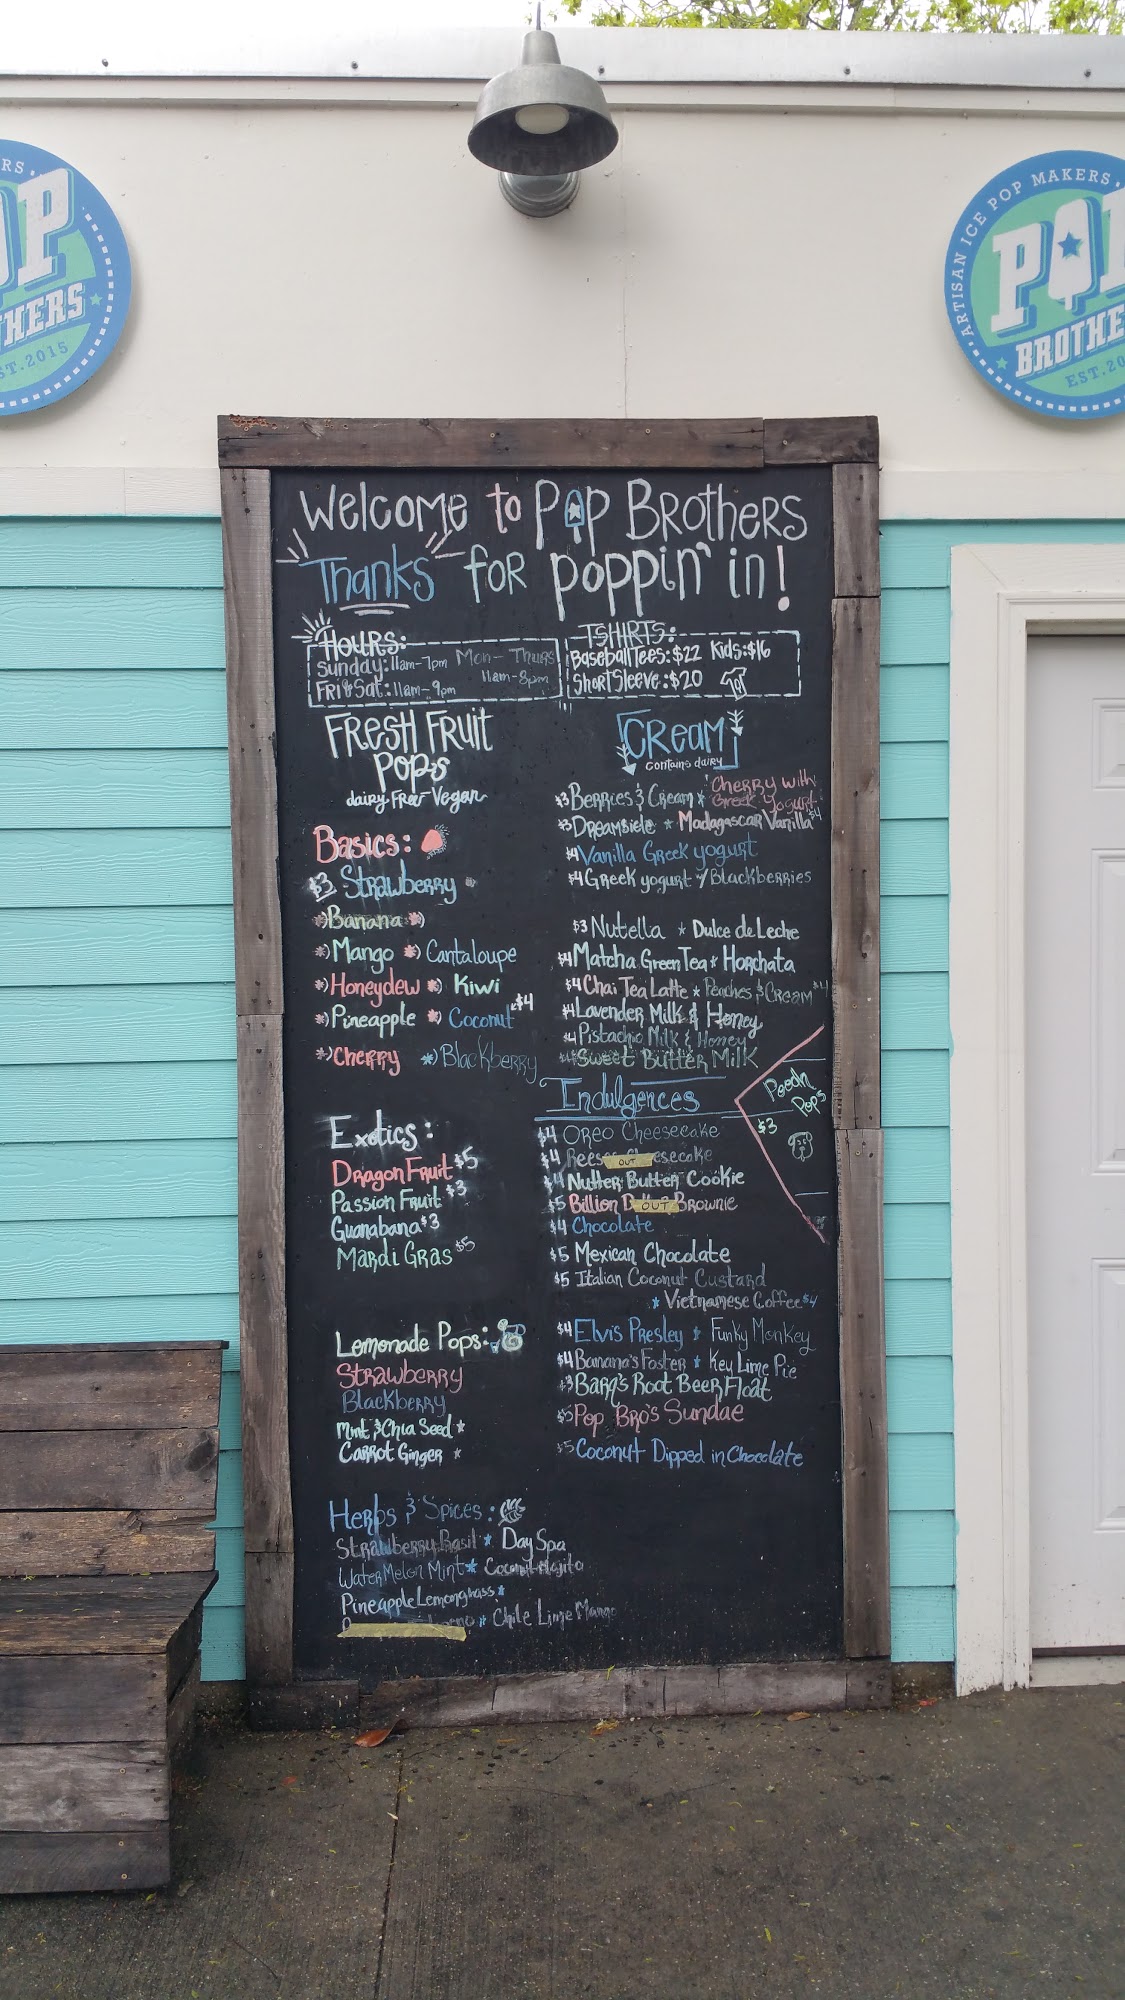 RS.
OP
THERS
ST. 2015
ARTISAN ICE POP MAKERS.
POP
BROTHE
EST. 20
Welcome to Pop Brothers
Thanks for poppin' in!
Hours:
Sunday: 11am-7pm Mon-Thurs
Fri & Sat: 11am-9pm 11am-8pm
TSHIRTS:
Baseball Tees: $22 Kids: $16
Short Sleeve: $20
Fresh Fruit
Pops
dairy Free Vegan
Basics:
$3 Strawberry
Banana
Mango Cantaloupe
Honeydew Kiwi
Pineapple Coconut $4
Cherry Blackberry
Exotics:
Dragon Fruit $5
Passion Fruit $3
Guanabana $3
Mardi Gras $5
Lemonade Pops:
Strawberry
Blackberry
Mint & Chia Seed
Carrot Ginger
Herbs & Spices:
Strawberry Basil Day Spa
WaterMelon Mint Coconut Mojito
Pineapple Lemongrass
Chile Lime Mango
Cream
contains dairy
$3 Berries & Cream Cherry with Greek Yogurt
$3 Dreamsicle Madagascar Vanilla $4
$4 Vanilla Greek yogurt
$4 Greek yogurt w/ Blackberries
$3 Nutella Dulce de Leche
$4 Matcha Green Tea Horchata
$4 Chai Tea Latte Peaches & Cream $4
$4 Lavender Milk & Honey
$4 Pistachio Milk & Honey
$4 Sweet Butter Milk
Indulgences
$4 Oreo Cheesecake
$4 Reeses OUT esecake
$4 Nutter Butter Cookie
$5 Billion OUT Brownie
$4 Chocolate
$5 Mexican Chocolate
$5 Italian Coconut Custard
Vietnamese Coffee $4
$4 Elvis Presley Funky Monkey
$4 Banana's Foster Key Lime Pie
$3 Barq's Root Beer Float
$5 Pop Bro's Sundae
$5 Coconut Dipped in Chocolate
Pooch
Pop's
$3